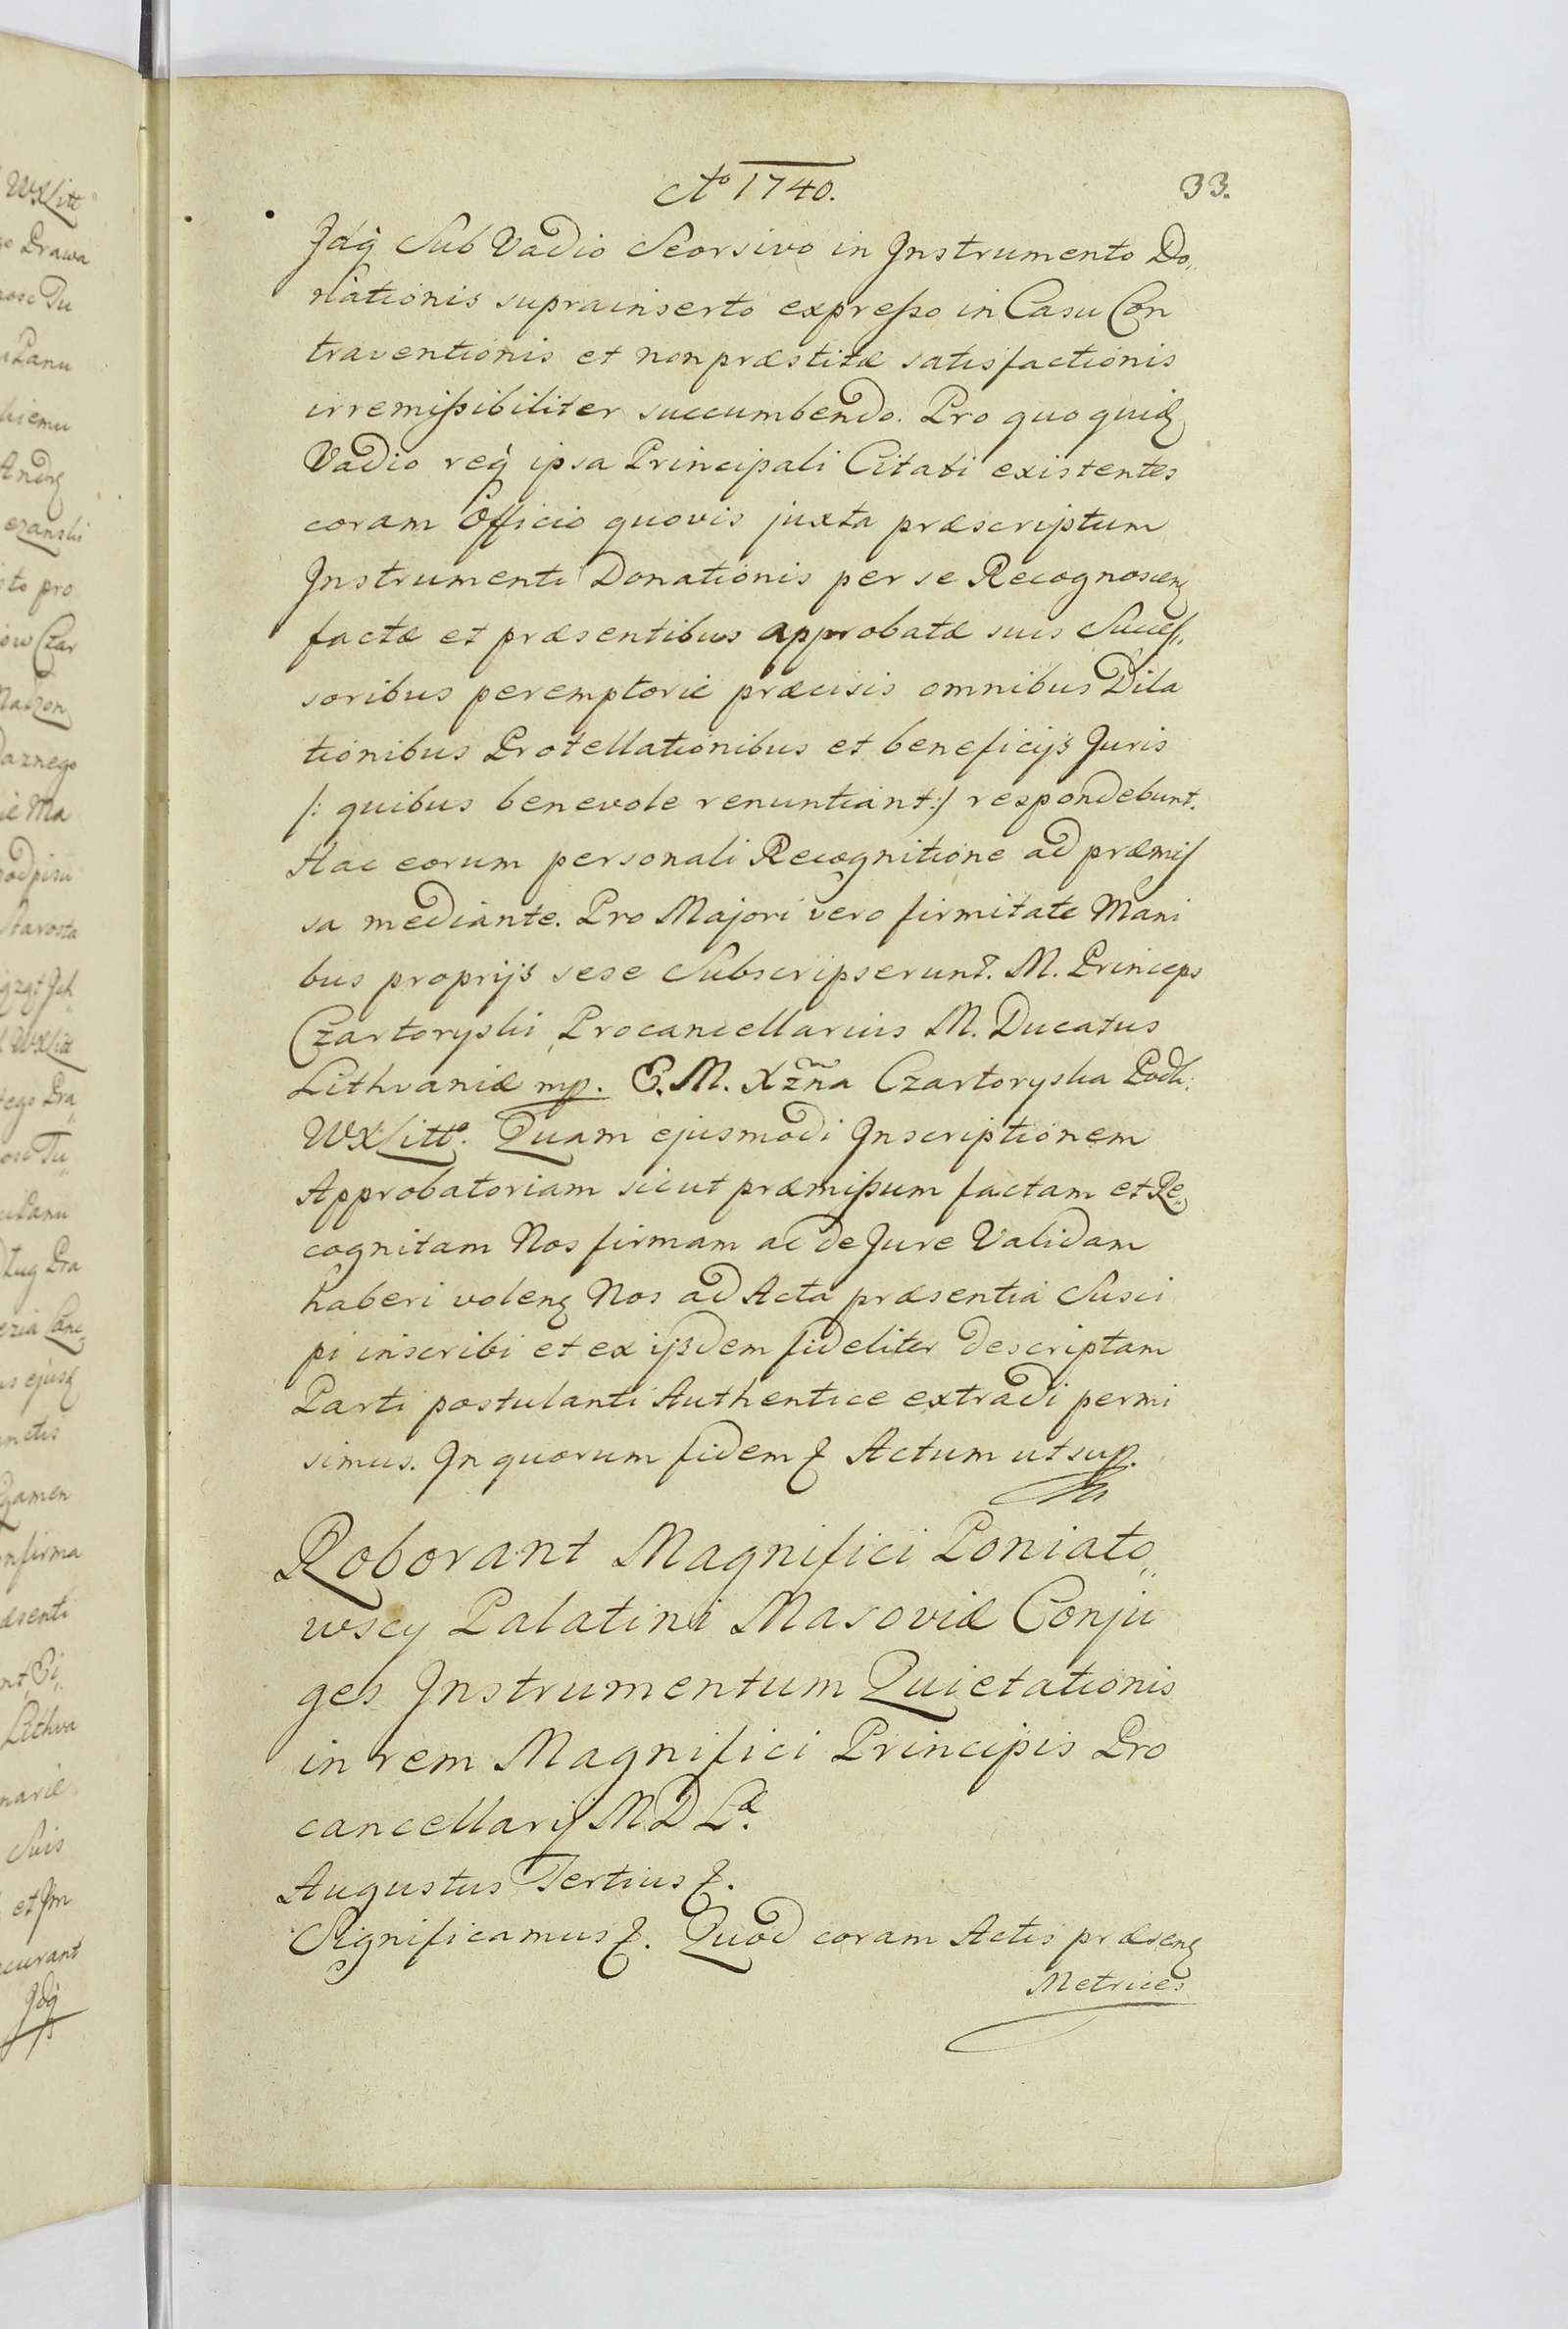 Ao 1740.
33.
Idq̃ Sub Vadio Seorsivo in Instrumento Do„
nationis suprainserto expresso in Casu Con
traventionis et non præstitæ satisfactionis
irremissibiliter succumbendo. Pro quo quid
Vadio req̃ ipsa Principali Citati existentes
coram Officio quovis juxta præscriptum
Instrumenti Donationis per se Recognoscen
factæ et præsentibus approbatæ suis Succes„
soribus peremptorie præcisis omnibus Dila
tionibus Protellationibus et beneficijs Juris
/: quibus benevole renuntiant :/ respondebunt.
Hac eorum personali Recognitione ad præmis
sa mediante. Pro Majori vero firmitate Mani
bus proprijs sese Subscripserunt. M. Princeps
Czartoryski Procancellarius M. Ducatus
Lithvaniæ mp. E. M. Xżna Czartoryska Podk:
WXLitto. Quam ejusmodi Inscriptionem
Approbatoriam sicut præmissum factam et Re„
cognitam Nos firmam ac de Jure Validam
haberi volen Nos ad Acta præsentia Susci
pi inscribi et ex ijsdem fideliter descriptam
Parti postulanti Authentice extradi permi
simus. In quorum fidem & Actum ut sup.
Roborant Magnifici Poniato„
wscy Palatini Masoviæ Conju
ges Instrumentum Quietationis
in rem Magnifici Principis Pro
cancellarij M D Læ.
Augustus Tertius &.
Significamus &. Quod coram Actis præsen
Metrices
WXLitt
Drawa
Panu
pro
Czar
Ma
Starosta
WXLitt
Pra
ejusd
Lithva
Suis
et Im
curant
Idq̃